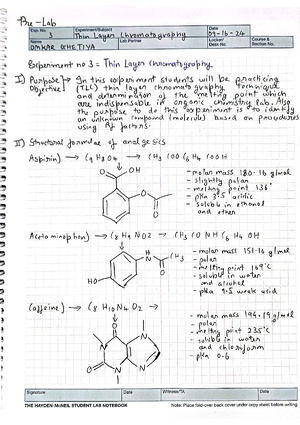 Pre-Lab
Exp. No. 3
Experiment/Subject
Thin Layer Chromatography
Date
09-16-24
Name
OMKAR GHETIYA
Lab Partner
Locker/
Desk No.
Course &
Section No.
Experiment no 3 = Thin Layer chromatography.
I) Purpose → In this experiment students will be practicing
Objective (TLC) thin layer chromatography technique
and determination of the melting point which
are indispensable in organic chemistry lab. Also
the purpose to do this experiment is to identify
an unknown compound (molecule) based on procedures
using Rf factors.
II) Structural formulae of analgesics
Aspirin) → C9 H8 O4 → CH3 COO C6 H4 COOH
- molar mass 180.16 g/mol
- slightly polar
- melting point 136°
- pka 3.5 acidic
- soluble in ethanol
and ether
OH
O
O
O
Acetaminophen) → C8 H9 NO2 → CH3 CO NH C6 H4 OH
- molar mass 151.16 g/mol
- polar
- melting point 169°C
- soluble in water
and alcohol
- pka 9.5 weak acid
H
N
CH3
O
HO
Caffeine) → C8 H10 N4 O2 →
- molar mass 194.19 g/mol
- polar
- melting point 235°C
- soluble in water
and chloroform
- pka 0.6
O
N
N
N
N
O
Signature
Date
Witness/TA
Date
THE HAYDEN-McNEIL STUDENT LAB NOTEBOOK
Note: Place fold-over back cover under copy sheet before writing